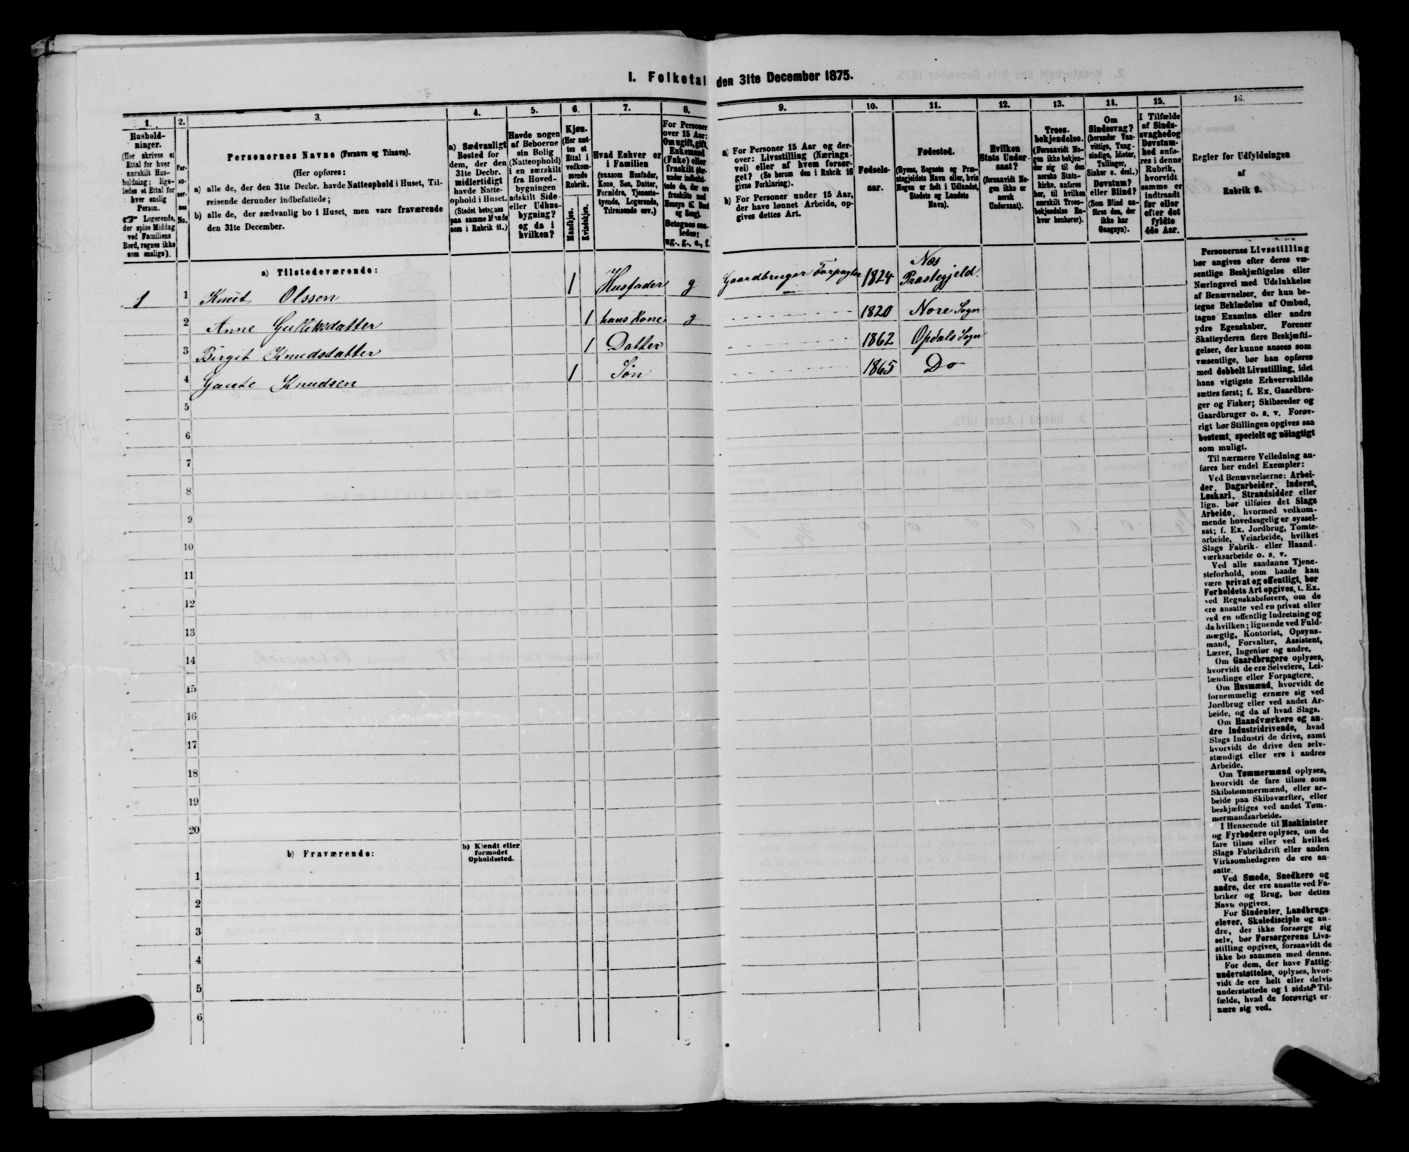 I. Folketal den 31te December 1875.
1.
Hushold-
ninger.
(Her skrives et
Ettal for hver
særskilt Hus-
holdning; lige-
ledes et Ettal for
hver enslig
Person.
Logerende,
der spise Middag
ved Familiens
Bord, regnes ikke
som enslige).
2.
Per-
so-
ner-
nes
No.
3.
Personernes Navne (Fornavn og Tilnavn).
(Her opføres:
a) alle de, der den 31te Decbr. havde Natteophold i Huset, Til-
reisende derunder indbefattede;
b) alle de, der sædvanlig bo i Huset, men vare fraværende
den 31te December.
4.
a) Sædvanligt
Bosted for
dem, der den
31te Decbr.
midlertidigt
havde Natte-
ophold i Huset.
(Stedet betegnes
paa samme Maade
som i Rubrik 11.)
5.
Havde nogen
af Beboerne
sin Bolig
(Natteophold)
i en særskilt
fra Hoved-
bygningen
adskilt Side-
eller Udhus-
bygning?
og da i
hvilken?
6.
Kjøn.
(Her sæt-
tes et
Ettal i
vedkom-
mende
Rubrik.
Mandkjøn.
Kvindekjøn.
7.
Hvad Enhver er
i Familien
(saasom Husfader,
Kone, Søn, Datter,
Forældre, Tjeneste-
tyende, Logerende,
Tilreisende osv.)
8.
For Personer
over 15 Aar:
Om ugift, gift,
Enkemand
(Enke) eller
fraskilt
Betegnes saa-
ledes:
ug., g., e., f.
9.
a) For Personer 15 Aar og der-
over: Livsstilling (Nærings-
vei) eller af hvem forsør-
get? (Se herom den i Rubrik 16
givne Forklaring).
b) For Personer under 15 Aar,
der have lønnet Arbeide, op-
gives dettes Art.
10.
Fødsels-
aar.
11.
Fødested.
(Byens, Sognets og Præ-
stegjeldets Navn eller, hvis
Nogen er født i Udlandet,
Stedets og Landets
Navn).
12.
Hvilken
Stats Under-
saat?
(forsaavidt No-
gen ikke er
norsk
Undersaat).
13.
Troes-
bekjendelse.
(Forsaavidt No-
gen ikke bekjen-
der sig til den
norske Stats-
kirke, anføres
her, til hvilken
særskilt Troes-
bekjendelse En-
hver henhører).
Om
Sindssvag?
(herunder Van-
vittige, Tung-
sindige, Idioter,
Tullinger,
Sinker o. desl.)
Døvstum?
eller Blind?
(Som Blind an-
føres den, der
ikke har
Gangsyn).
15.
I Tilfælde
af Sinds-
svaghed og
Døvstum-
hed anfø-
res i denne
Rubrik,
hvorvidt
samme er
indtraadt
før eller
efter det
fyldte
4de Aar.
16.
Regler for Udfyldningen
af
Rubrik 9.
a) Tilstedeværende:
1 1 Knut Olssen 1 Husfader g Gaardbruger Forpagter 1824 Næs Præstegjeld.
2 Anne Gulleksdatter 1 hans Kone g 1820 Nore Sogn
3 Birgit Knudsdatter 1 Datter 1862 Opdals Sogn
4 Knudsen 1 Søn 1865 Do
5
6
7
8
9
10
11
12
13
14
15
16
17
18
19
20
b) Fraværende:
b) Kjendt eller
formodet
Opholdssted.
1
2
3
4
5
6
Personernes Livsstilling
bør angives efter deres væ-
sentlige Beskjæftigelse eller
Næringsvei med Udelukkelse
af Benævnelser, der kun be-
tegne Beklædelse af Ombud,
tagne Examina eller andre
ydre Egenskaber. Forener
Skatteyderen flere Beskjæfti-
gelser, der kunne ansees som
væsentlige, bør han opføres
med dobbelt Livsstilling, idet
hans vigtigste Erhvervskilde
sættes først; f. Ex. Gaardbru-
ger og Fisker; Skibsreder og
Gaardbruger o. s. v. Forøv-
rigt bør Stillingen opgives saa
bestemt, specielt og nøiagtigt
som muligt.
Til nærmere Veiledning an-
føres her endel Exempler:
Ved Benævnelserne: Arbei-
der, Dagarbeider, Inderst,
Løskarl, Strandsidder eller
lign. bør tilføies det Slags
Arbeide, hvormed vedkom-
mende hovedsagelig er syssel-
sat; f. Ex. Jordbrug, Tomte-
arbeide, Veiarbeide, hvilket
Slags Fabrik- eller Haand-
værksarbeide o. s. v.
Ved alle saadanne Tjene-
steforhold, som baade kan
være privat og offentligt, bør
Forholdets Art opgives, f. Ex.
ved Regnskabsførere, om de
ere ansatte ved en privat eller
ved en offentlig Indretning og
da hvilken; lignende ved Fuld-
mægtig, Kontorist, Opsyns-
mand, Forvalter, Assistent,
Lærer, Ingeniør og andre.
Om Gaardbrugere oplyses,
hvorvidt de ere Selveiere, Lei-
lændinge eller Forpagtere.
Om Husmænd, hvorvidt de
fornemmelig ernære sig ved
Jordbrug eller ved andet Ar-
beide, og da af hvad Slags.
Om Haandværkere og an-
dre Industridrivende, hvad
Slags Industri de drive, samt
hvorvidt de drive den selv-
stændigt eller ere i andres
Arbeide.
Om Tømmermænd oplyses,
hvorvidt de fare tilsøs som
Skibstømmermænd, eller ar-
beide paa Skibsværfter, eller
beskjæftiges ved andet Tøm-
mermandsarbeide.
I Henseende til Maskinister
og Fyrbødere oplyses, om de
fare tilsøs eller ved hvilket
Slags Fabrikdrift eller anden
Virksomhedsgren de ere an-
satte.
Ved Smede, Snedkere og
andre, der ere ansatte ved Fa-
briker og Brug, bør dettes
Navn opgives.
For Studenter, Landbrugs-
elever, Skoledisciple og an-
dre, der ikke forsørge sig
selv, bør Forsørgerens Livs-
stilling opgives, forsaavidt de
ikke bo sammen med denne.
For dem, der have Fattig-
understøttelse, oplyses, hvor-
vidt de ere helt eller delvis
understøttede og i sidste Til-
fælde, hvad de forøvrigt er-
nære sig ved.